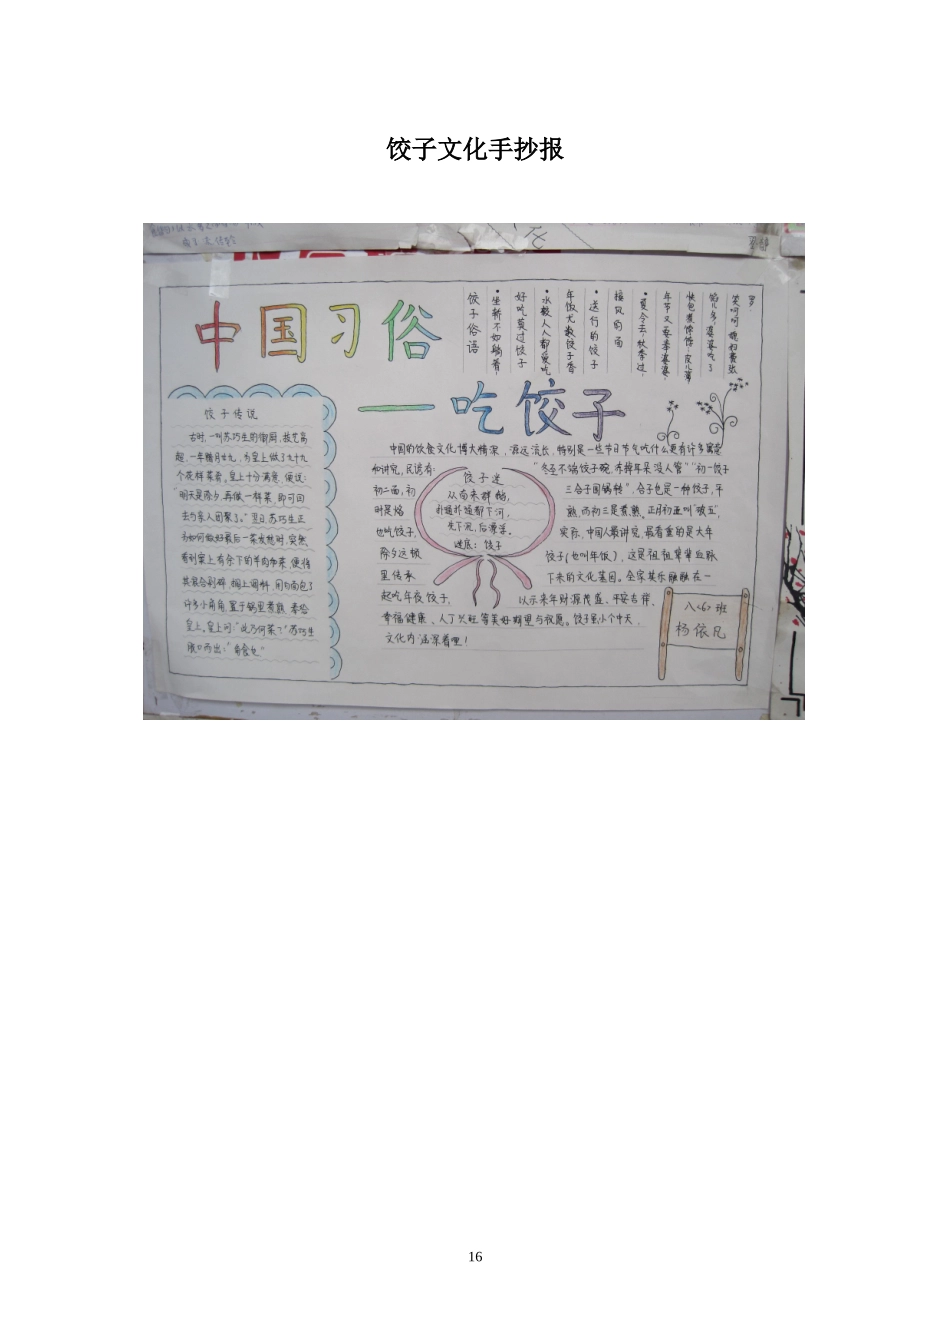 饺子文化手抄报
中国习俗
——吃饺子
饺子俗语
•坐薪不如躺着,
好吃莫过饺子
•水煮人人都爱吃
年饭尤数饺子香
•送行的饺子
接风的面
•夏令去,秋季过,
年节又要奉婆婆,
快包煮馎饦,皮儿薄
馅儿多,婆婆吃了
笑呵呵,媳妇费张
罗.
饺子传说
古时,一叫苏巧生的御厨,技艺高
超,一年腊月廿九,为皇上做了九十九
个花样菜肴,皇上十分满意,便说:
"明天是除夕,再做一样菜,即可回
去与家人团聚了。"翌日,苏巧生正
为如何做好最后一菜发愁时,突然
看到案上有余下的羊肉和菜,便将
其混合剁碎,捆上调料,用白面包了
许多小角角,置于锅里煮熟,奉给
皇上。皇上问:"此乃何菜?"苏巧生
顺口而出:"
中国的饮食文化博大精深,源远流长,特别是一些节日节气吃什么更有许多寓意
和讲究,民谚有: "冬至不端饺子碗,冻掉耳朵没人管""初一饺子
初二面,初 三合子围锅转",合子也是一种饺子,年
时是 熟,而初三是煮熟。正月初五叫"破五",
也吃饺子, 实际,中国人最讲究,最看重的是大年
除夕这顿 饺子(也叫年饭),这是祖祖辈辈血脉
里传承 下来的文化基因。全家其乐融融在一
起吃年夜饺子, 以示来年财源茂盛、平安吉祥、
幸福健康、人丁兴旺等美好期望与祝愿。饺子里小个中天,
文化内涵深着哩!
饺子迷
从南来群鹅,
扑通扑通都下河,
先下沉,后漂浮。
谜底:饺子
八<6>班
杨依凡
16